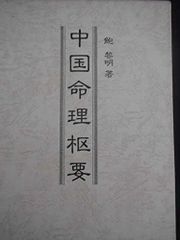 鮑黎明 著
中国命理枢要